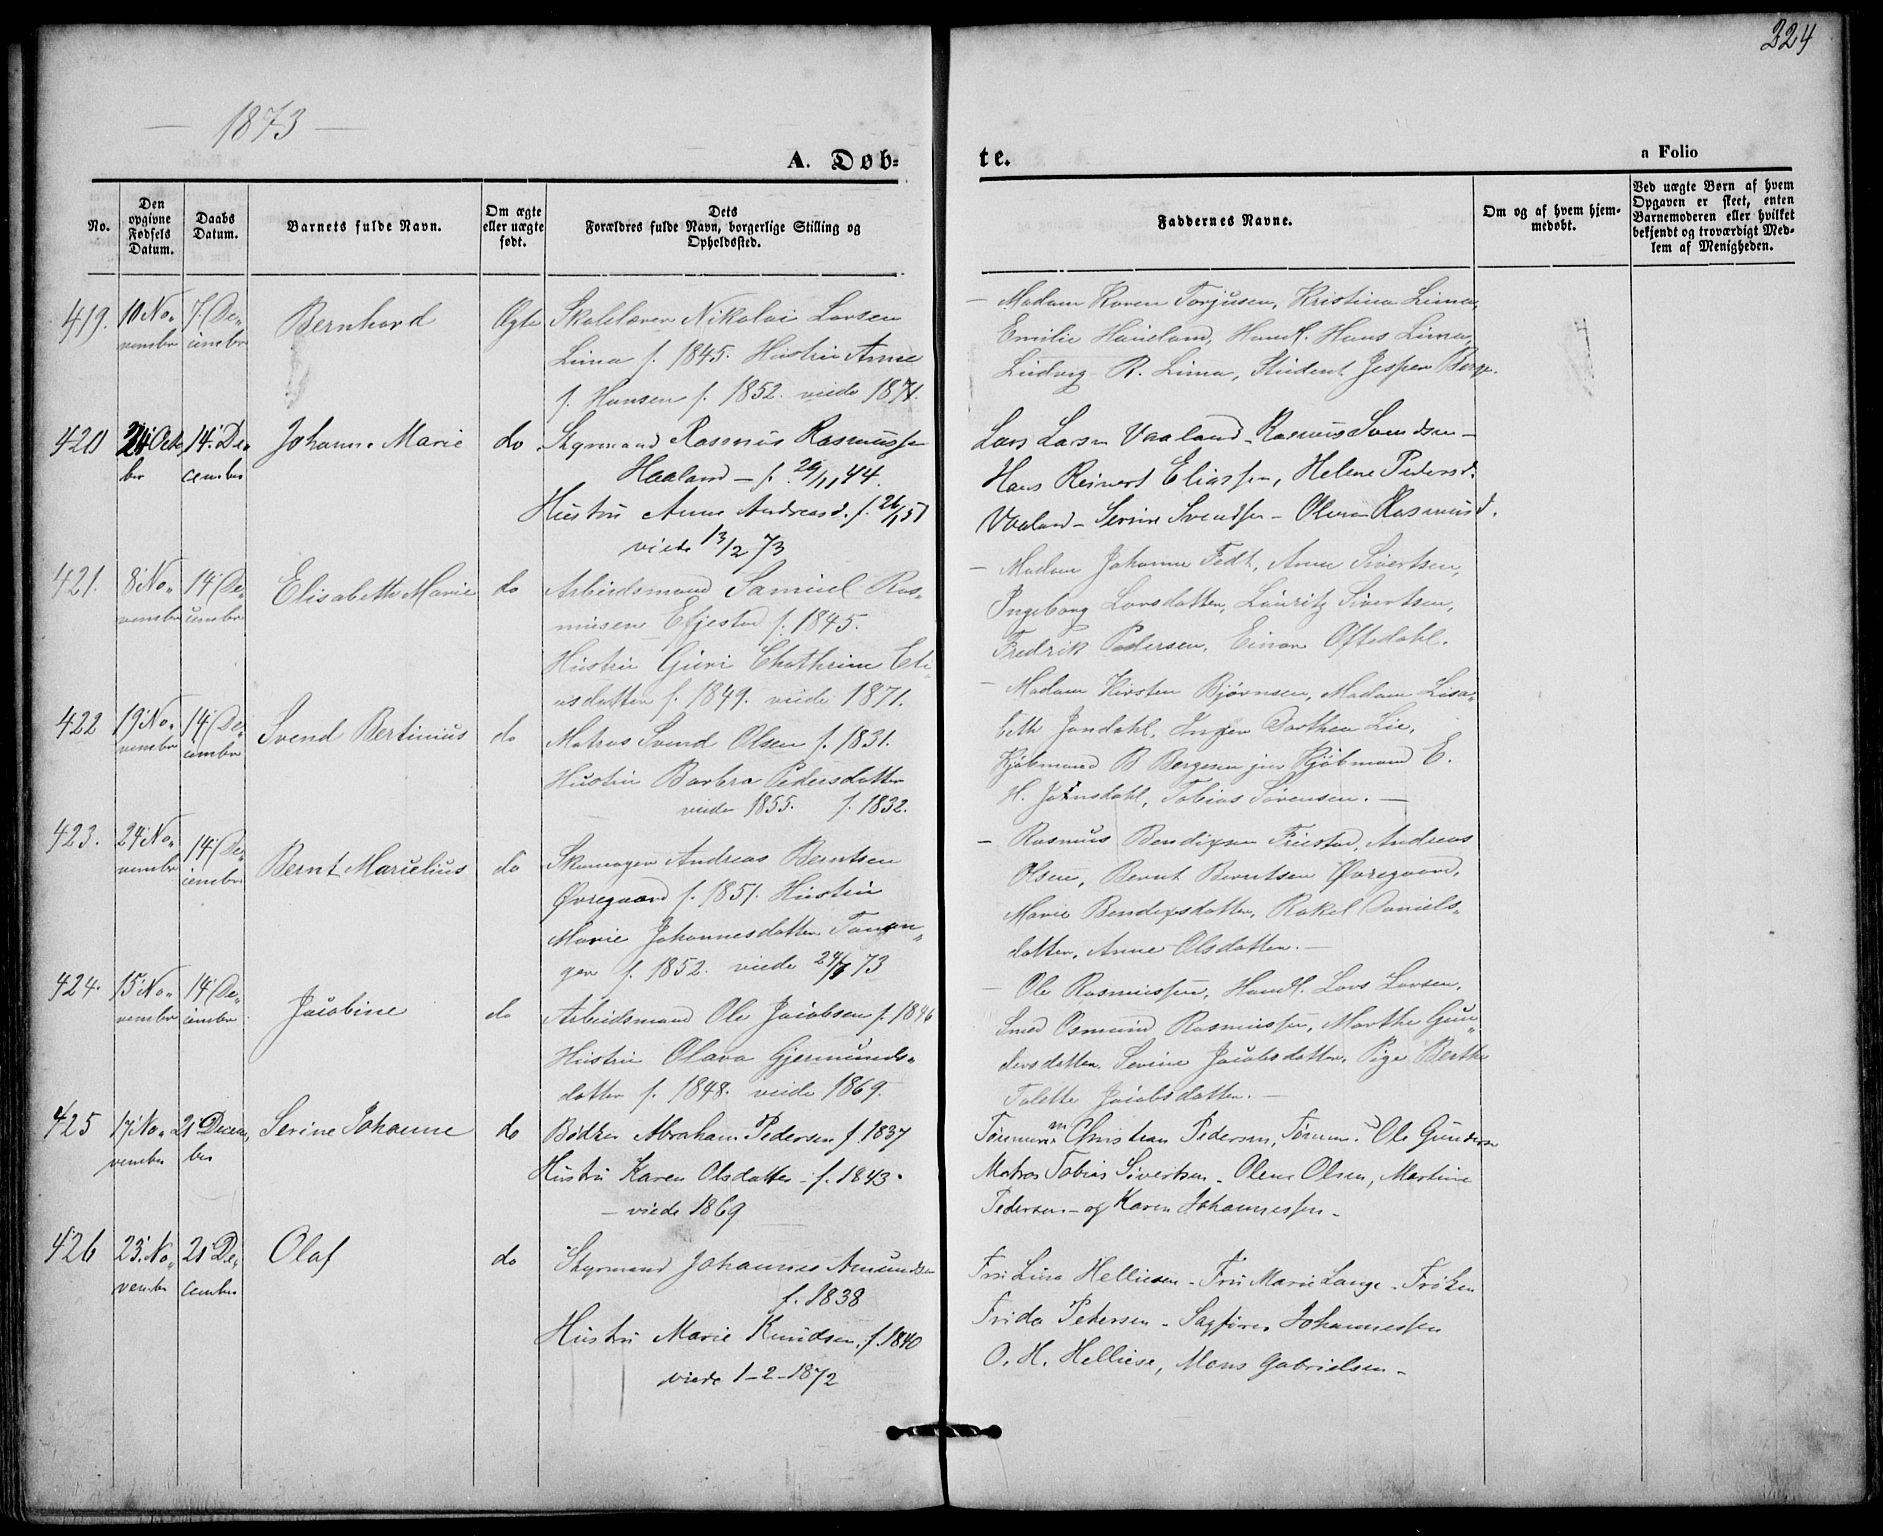 324
— 1873 —
A. Døb=
te.
a Folio
No.
Den opgivne Fødsels Datum.
Daabs Datum.
Barnets fulde Navn.
Om ægte eller uægte født.
Dets
Forældres fulde Navn, borgerlige Stilling og Opholdssted.
Faddernes Navne.
Om og af hvem hjemmedøbt.
Ved uægte Børn af hvem Opgaven er skeet, enten Barnemoderen eller hvilket bekjendt og troværdigt Medlem af Menigheden.
419. 10 November 7' December Bernhard Ægte
Skolelærer Nikolai Larsen
Lima f. 1845. Hustru Anne
f. Hansen f. 1852. viede 1871.
— Madam Karen Torjusen, Kristina Lima,
Emilie Haueland, Handl. Hans Lima,
Ludvig R. Lima, Student Jesper Berge.
420 24' October 14' December Johanne Marie do
Styrmand Rasmus Rasmussen
Haaland — f. 29/11 44.
Hustru Anne Andreasd. f. 26/1 51
viede 13/2 73
Lars Larsen Vaaland - Rasmus Svendsen —
Hans Reinert Eliassen, Helene Pedersd.
Vaaland — Serine Svendsen — Olene Rasmusd.
421. 8' November 14' December Elisabeth Marie do
Arbeidsmand Samuel Ras„
musen Efjestad f. 1845.
Hustru Guri Chathrine
datter f. 1849. viede 1871.
— Madam Johanne Fedt, Anne Sivertsen,
Ingeborg Larsdatter, Lauritz Sivertsen,
Fredrik Pedersen, Einar Oftedahl.
422 19' November 14' December Svend Bertinius do
Matros Svend Olsen f. 1831.
Hustru Barbra Pedersdatter
viede 1855. f. 1832.
— Madam Kirsten Bjørnsen, Madam Lisa„
beth Jondahl, Inger Dorthea Lie,
Kjøbmand B Bergesen jun Kjøbmand E.
H. Tobias Sørensen. —
423. 24' November 14' December Bernt Marselius do
Skomager Andreas Berntsen
Øvregaard f. 1851. Hustru
Marie Johannesdatter Tanan„
ger f. 1852. viede 24/6 73
— Rasmus Bendixen Friestad, Andreas
Olsen, Bernt Berntsen Øvregaard,
Marie Bendixsdatter, Rakel Daniels„
datter, Anne Olsdatter. —
424. 15' November 14' December Jacobine do
Arbeidsmand Ole Jacobsen f. 1846
Hustru Olava Gjermunds„
datter f. 1848. viede 1869.
— Ole Rasmussen, Handl. Lars Larsen,
Smed Osmund Rasmussen, Marthe Gun„
dersdatter, Serine Jacobsdatter, Pige Berthe
Tolette Jacobsdatter. —
425 17' November 21' December Serine Johanne do
Bødker Abraham Pedersen f. 1837
Hustru Karen Olsdatter - f. 1843.
— viede 1869
Tømmerm Christian Pedersen, Tømm. Ole Gundersen
Matros Tobias Sivertsen - Olene Olsen, Martine
Pedersen - og Karen Johannessen -
426 23' November 21' December Olaf do
Styrmand Johannes Amundsen
f. 1838
Hustru Marie Knudsen f. 1840
viede 1-2-1872
Fru Lina Helliesen - Fru Marie Lange - Frøken
Frida Petersen - Sagfører Johannessen
O. H. Helliese, Mons Gabrielsen -